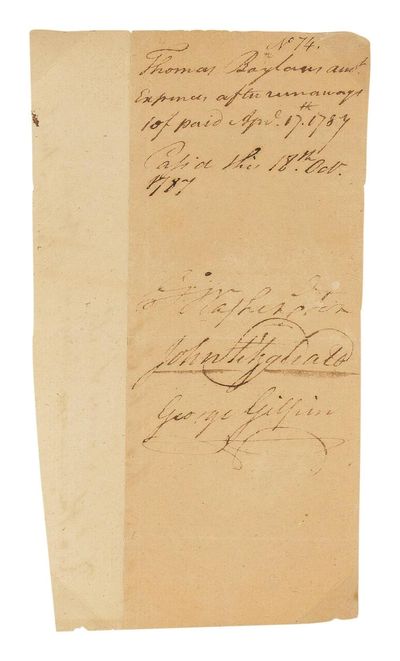 No 74.
Thomas Boylans acct
Expences after runaways
pd paid Apr. 17.th 1787
Pass'd this 18.th Oct.
1787
Go Washington
John Fitzgerald
George Gilpin